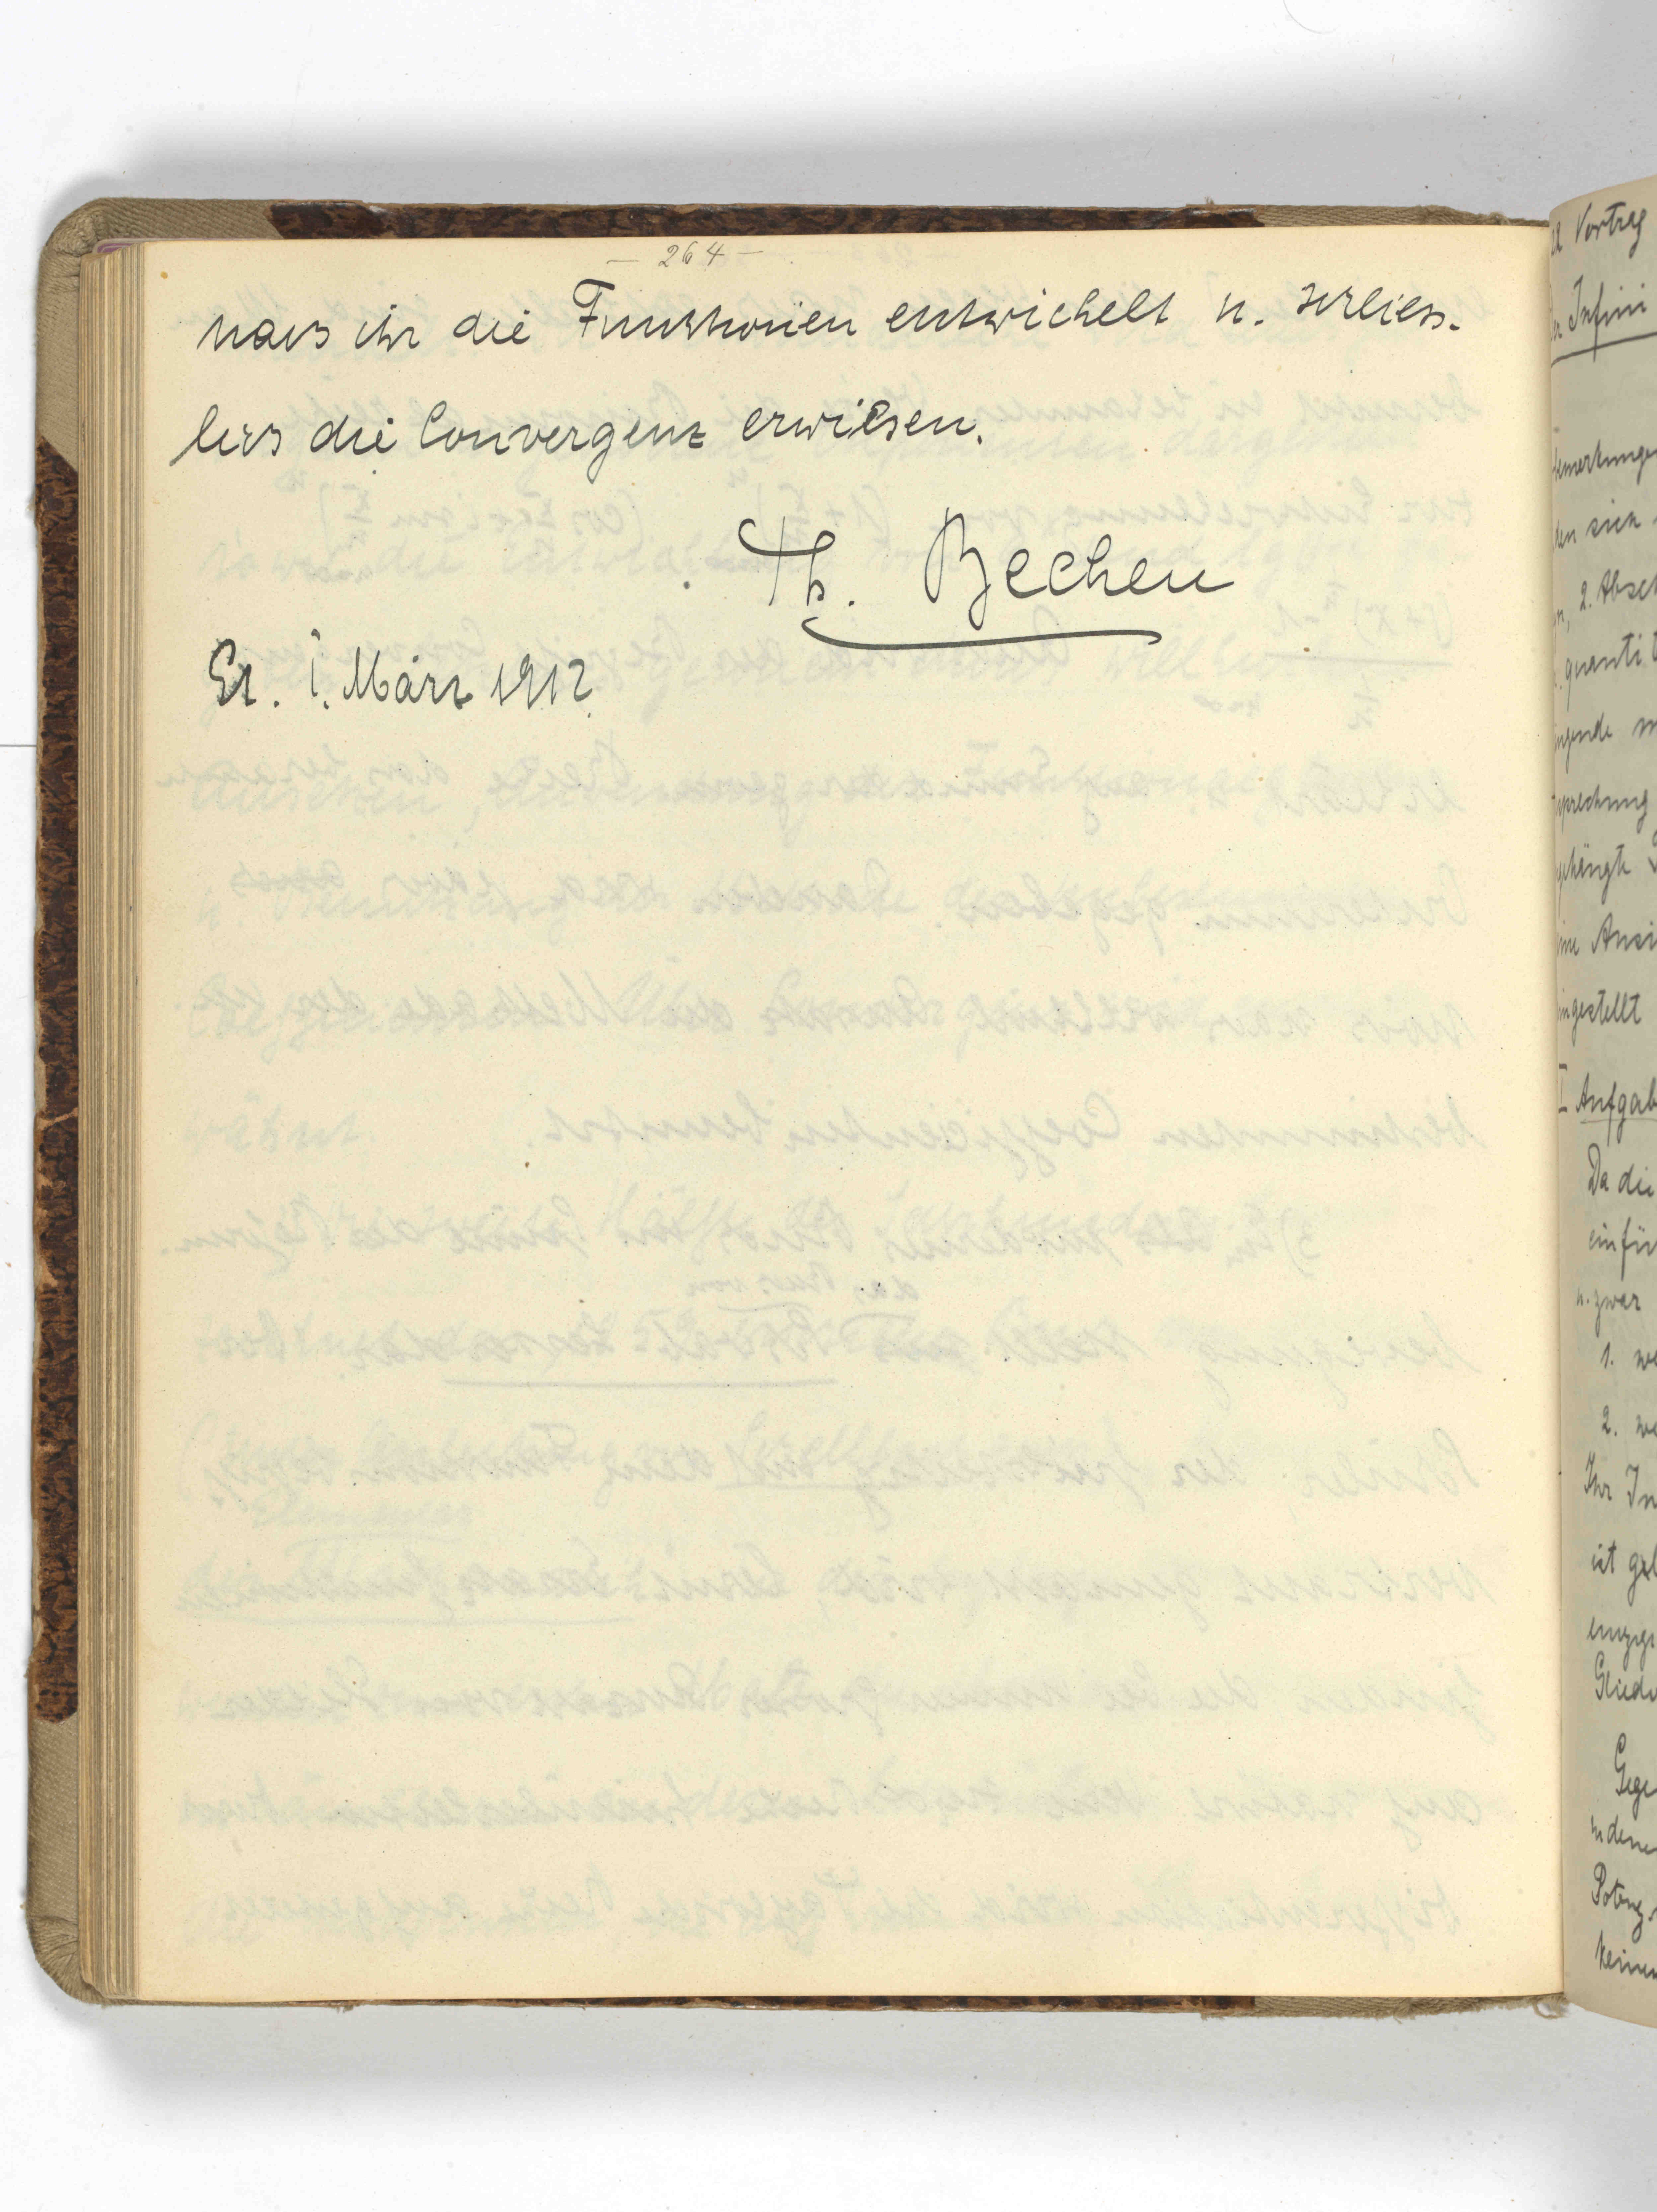 — 264 —
nach ihr die Funktionen entwickelt u. schliess-
lich die Convergenz erwiesen.
Th. Bechen
1. März 1912.
Vortrag
Infini
emerkunge
den sich
2. Absch
quanti
ngende
sprechung
gehängte
ine Ansi
ingestellt
I Aufgab
Da die
einfü
u. zwar
1. we
2. we
Ihr In
ist
Gliede
Gege
in dene
Potenz
keine